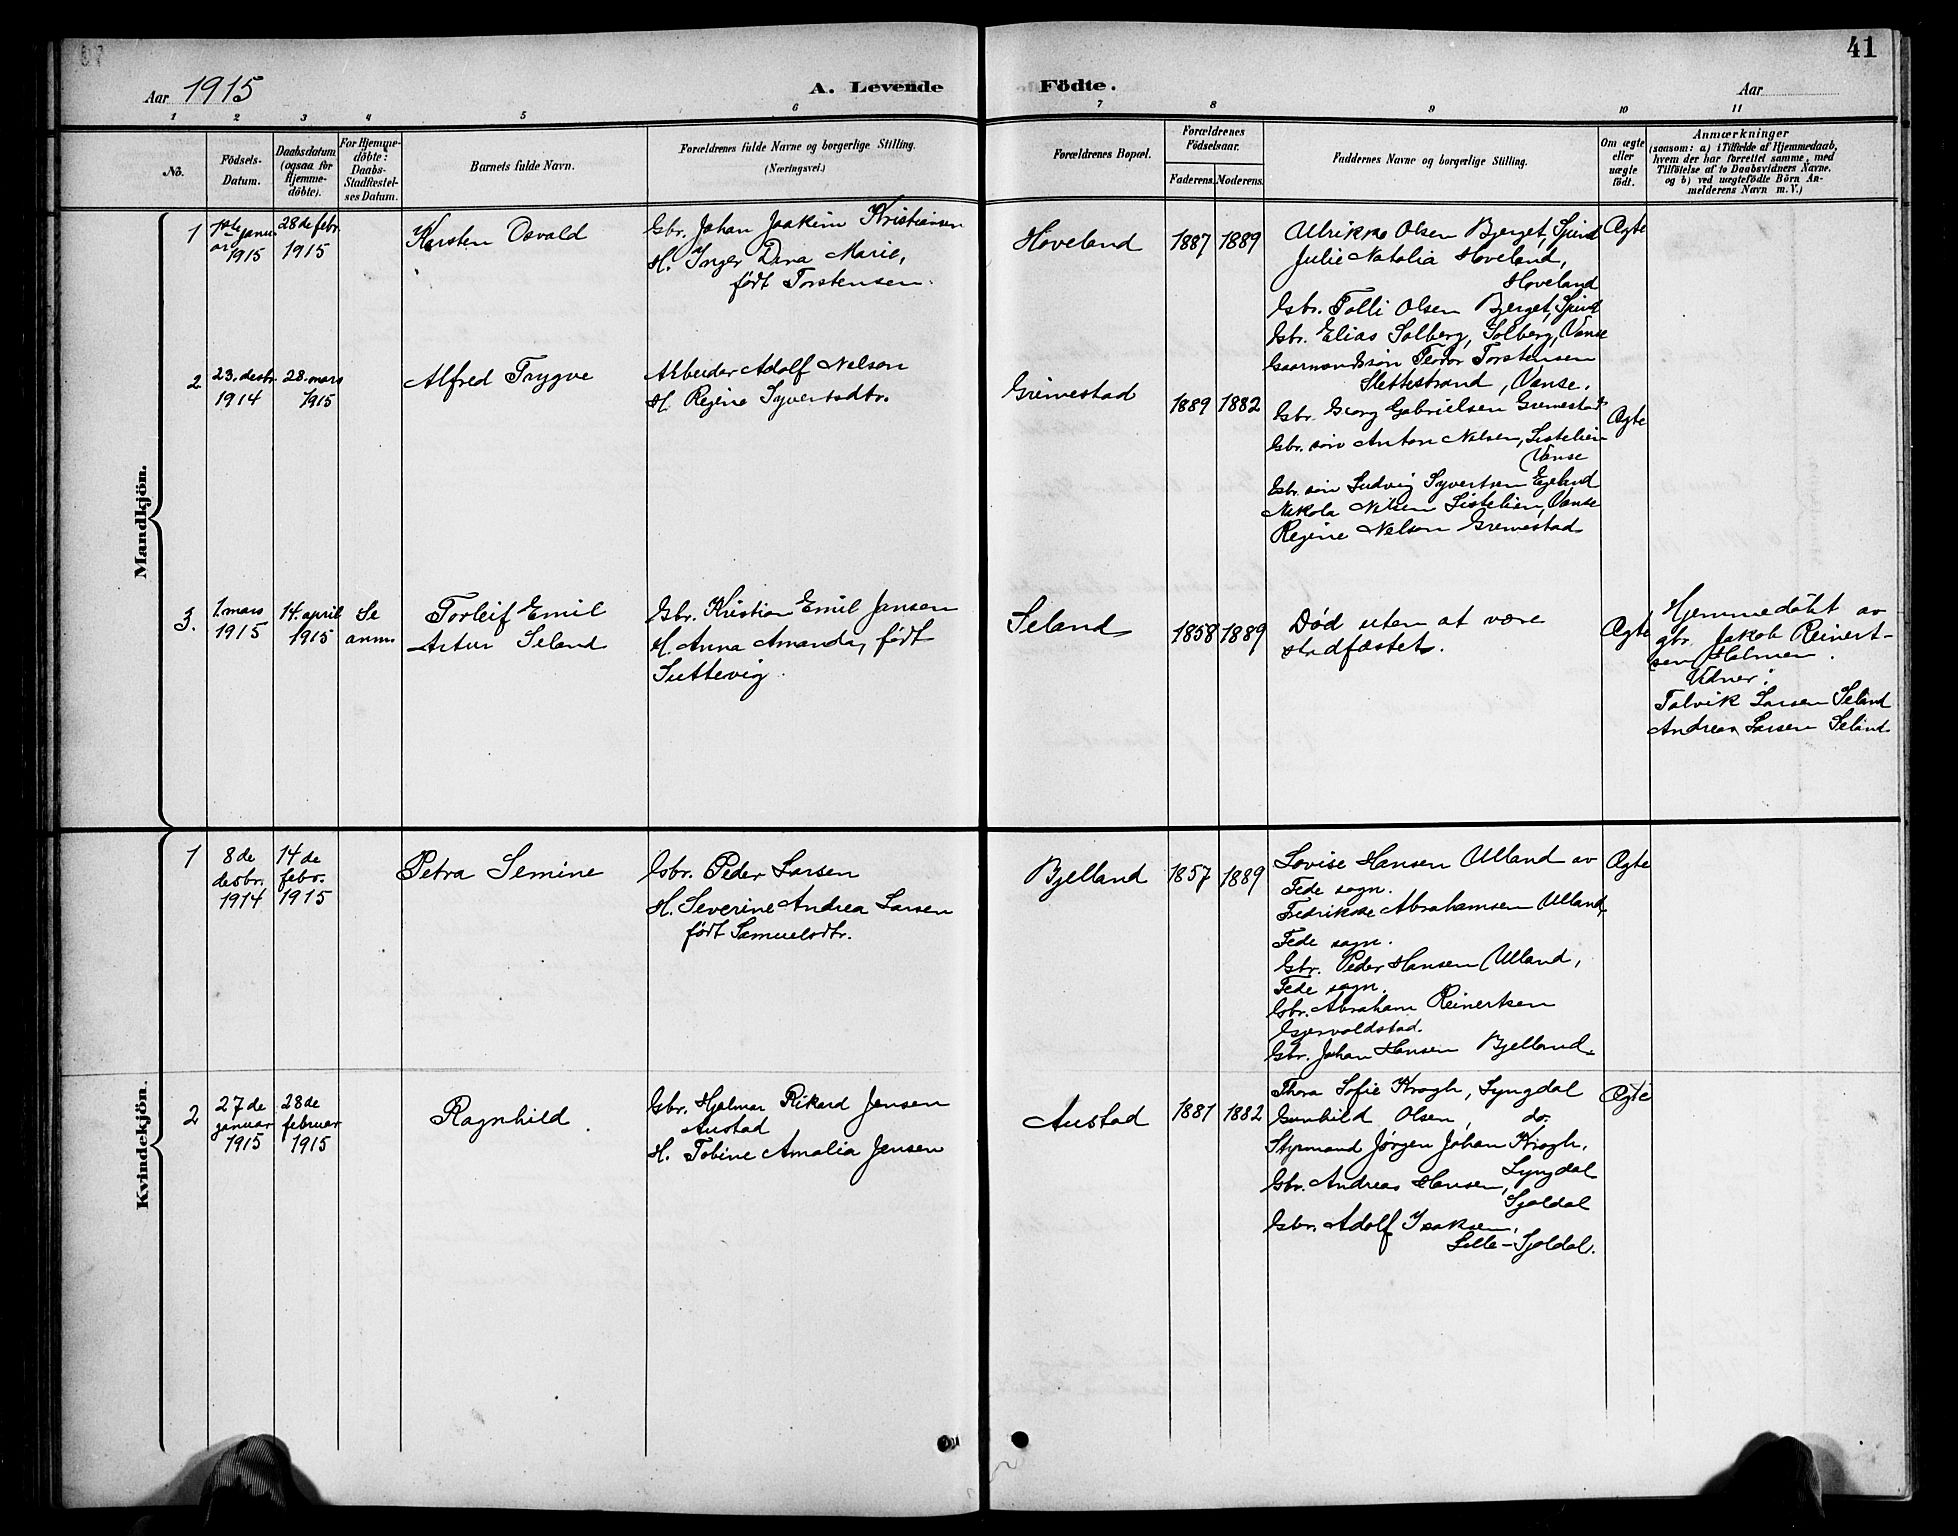 41
Aar 1915
A. Levende
Födte.
Aar
1 2 3 4 5 6 7 8 9 10 11
No.
Födsels-
Datum.
Daabsdatum
(ogsaa for
Hjemme-
döbte).
For Hjemme-
döbte:
Daabs-
Stadfæstel-
ses Datum.
Barnets fulde Navn.
Forældrenes fulde Navne og borgerlige Stilling.
(Næringsvei.)
Forældrenes Bopæl.
Forældrenes
Födselsaar.
Faderens. Moderens.
Faddernes Navne og borgerlige Stilling.
Om ægte
eller
uægte
födt.
Anmærkninger
(saasom: a) i Tilfælde af Hjemmedaab,
hvem der har forrettet samme, med
Tilföielse af to Daabsvidners Navne,
og b) ved uægtefödte Börn An-
melderens Navn m. V.)
Mandkjön.
1
1ste janu-
ar 1915
28de febr.
1915
Karsten Osvald
Gbr. Johan Joakim Kristiansen
H. Inger Dina Marie,
født Torstensen.
Hoveland
1887
1889
Ulrikke Olsen Bjerget, Spind
Julie Natalia Hoveland,
Hoveland
Gbr. Tolli Olsen Bjerget, Spind
Gbr. Elias Solberg, Solberg, Vanse
Gaarmandssøn Teodor Torstensen
Slettestrand, Vanse.
Ægte
2
23. desbr.
1914
28. mars
1915
Alfred Trygve
Arbeider Adolf Nelson
H. Regine Syvertsdtr.
Grimestad
1889
1882
Gbr. Georg Gabrielsen Grimestad
Gbr. søn Anton Nilsen, Listelien
Vanse
Gbr. søn Ludvig Syvertsen Eyeland
Nikola Nilsen Listelien, Vanse
Regine Nelson Grimestad
Ægte
3.
1. mars
1915
14. april
1915
Se
anm.
Torleif Emil
Artur Seland
Gbr. Kristian Emil Jansen
H. Anna Amanda, født
Luttevig.
Seland
1858
1889
Død uten at være
stadfæstet.
Ægte
Hjemmedøbt av
gbr. Jakob Reinert-
sen Holmen.
Vidner:
Tolvik Larsen Seland
Andreas Larsen Seland
Kvindekjön.
1
8de
desbr.
1914
14de
febr.
1915
Petra Semine
Gbr. Peder Larsen
H. Severine Andrea Larsen
født Samuelsdtr.
Bjelland
1857
1889
Lovise Hansen Ulland av
Fede sogn.
Fredrikke Abrahamsen Ulland,
Fede sogn.
Gbr. Peder Hansen Ulland,
Fede sogn.
Gbr. Abraham Reinertsen
Gjervoldstad.
Gbr. Johan Hansen Bjelland.
Ægte
2
27de
januar
1915
28de
februar
1915
Ragnhild
Gbr. Hjalmar Rikard Jensen
Austad
H. Tobine Amalia Jensen
Austad
1881
1882
Thora Sofie Krogh, Lyngdal
Gunhild Olsen, do.
Styrmand Jørgen Johan Krogh,
Lyngdal
Gbr. Andreas Hansen,
Sjoldal
Gbr. Adolf Isaksen,
Lille-Sjoldal.
Ægte